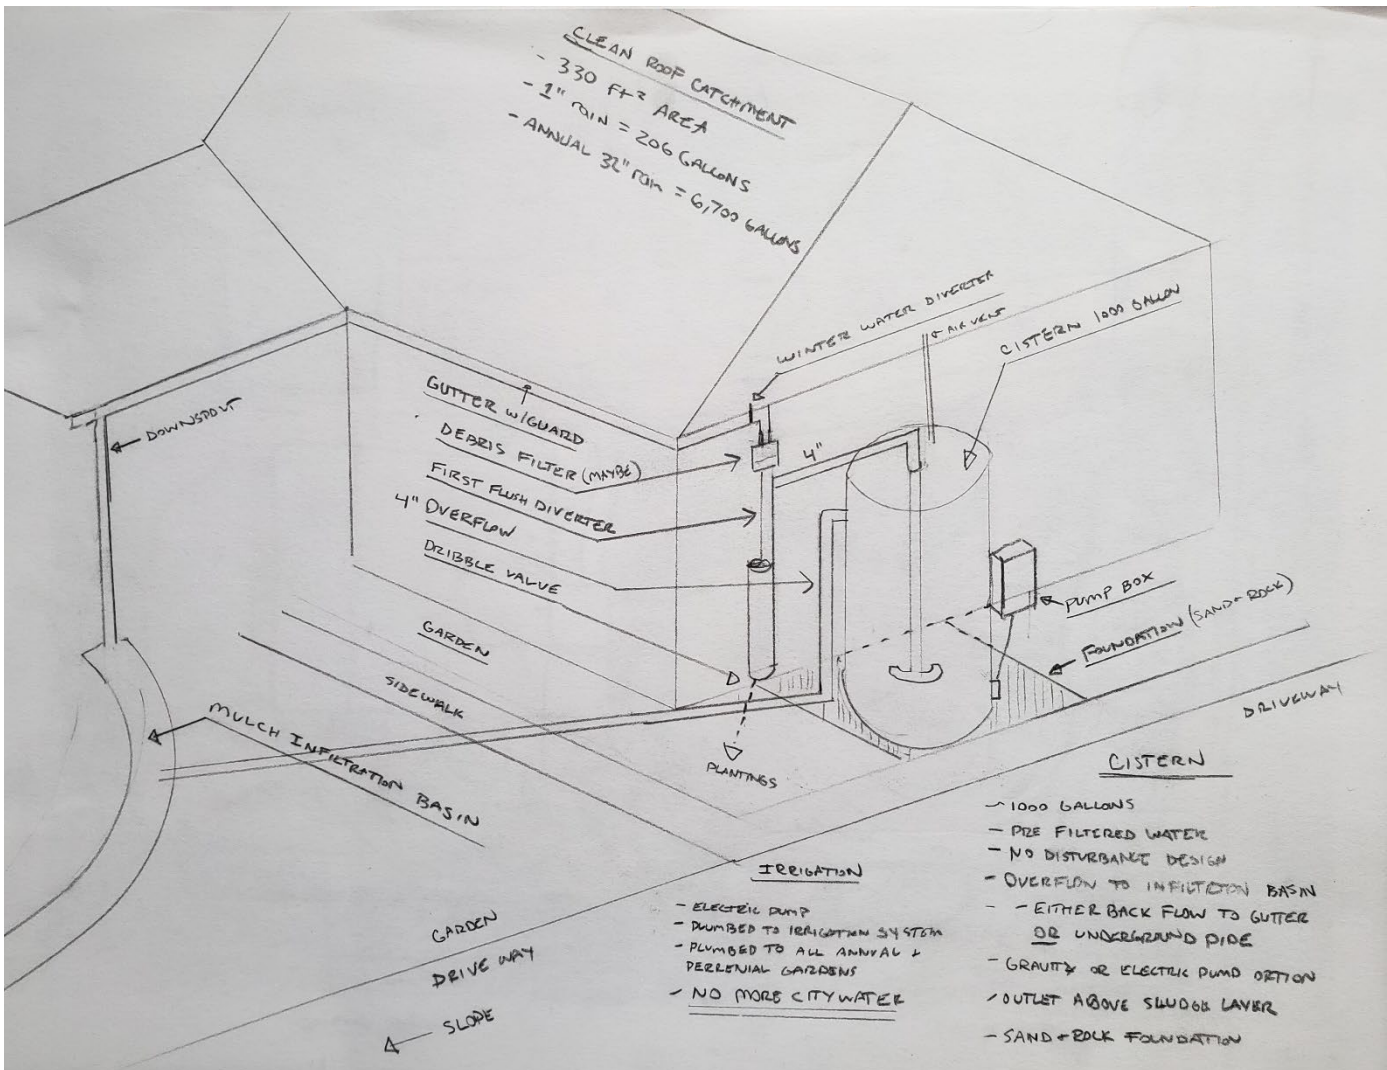 CLEAN ROOF CATCHMENT
- 330 Ft² AREA
- 1" rain = 206 GALLONS
- ANNUAL 32" rain = 6,700 GALLONS
WINTER WATER DIVERTER
AIR VENT
CISTERN 1000 GALLON
DOWNSPOUT
GUTTER W/GUARD
DEBRIS FILTER (MAYBE)
FIRST FLUSH DIVERTER
4" OVERFLOW
DRIBBLE VALUE
4"
PUMP BOX
FOUNDATION (SAND + ROCK)
GARDEN
SIDEWALK
MULCH INFILTRATION BASIN
PLANTINGS
DRIVEWAY
GARDEN
DRIVE WAY
SLOPE
IRRIGATION
- ELECTRIC PUMP
- PLUMBED TO IRRIGATION SYSTEM
- PLUMBED TO ALL ANNUAL +
PERRENIAL GARDENS
- NO MORE CITY WATER
CISTERN
- 1000 GALLONS
- PRE FILTERED WATER
- NO DISTURBANCE DESIGN
- OVERFLOW TO INFILTRTON BASIN
- - EITHER BACK FLOW TO GUTTER
OR UNDERGROUND PIPE
- GRAVITY OR ELECTRIC PUMP OPTION
- OUTLET ABOVE SLUDGE LAYER
- SAND + ROCK FOUNDATION